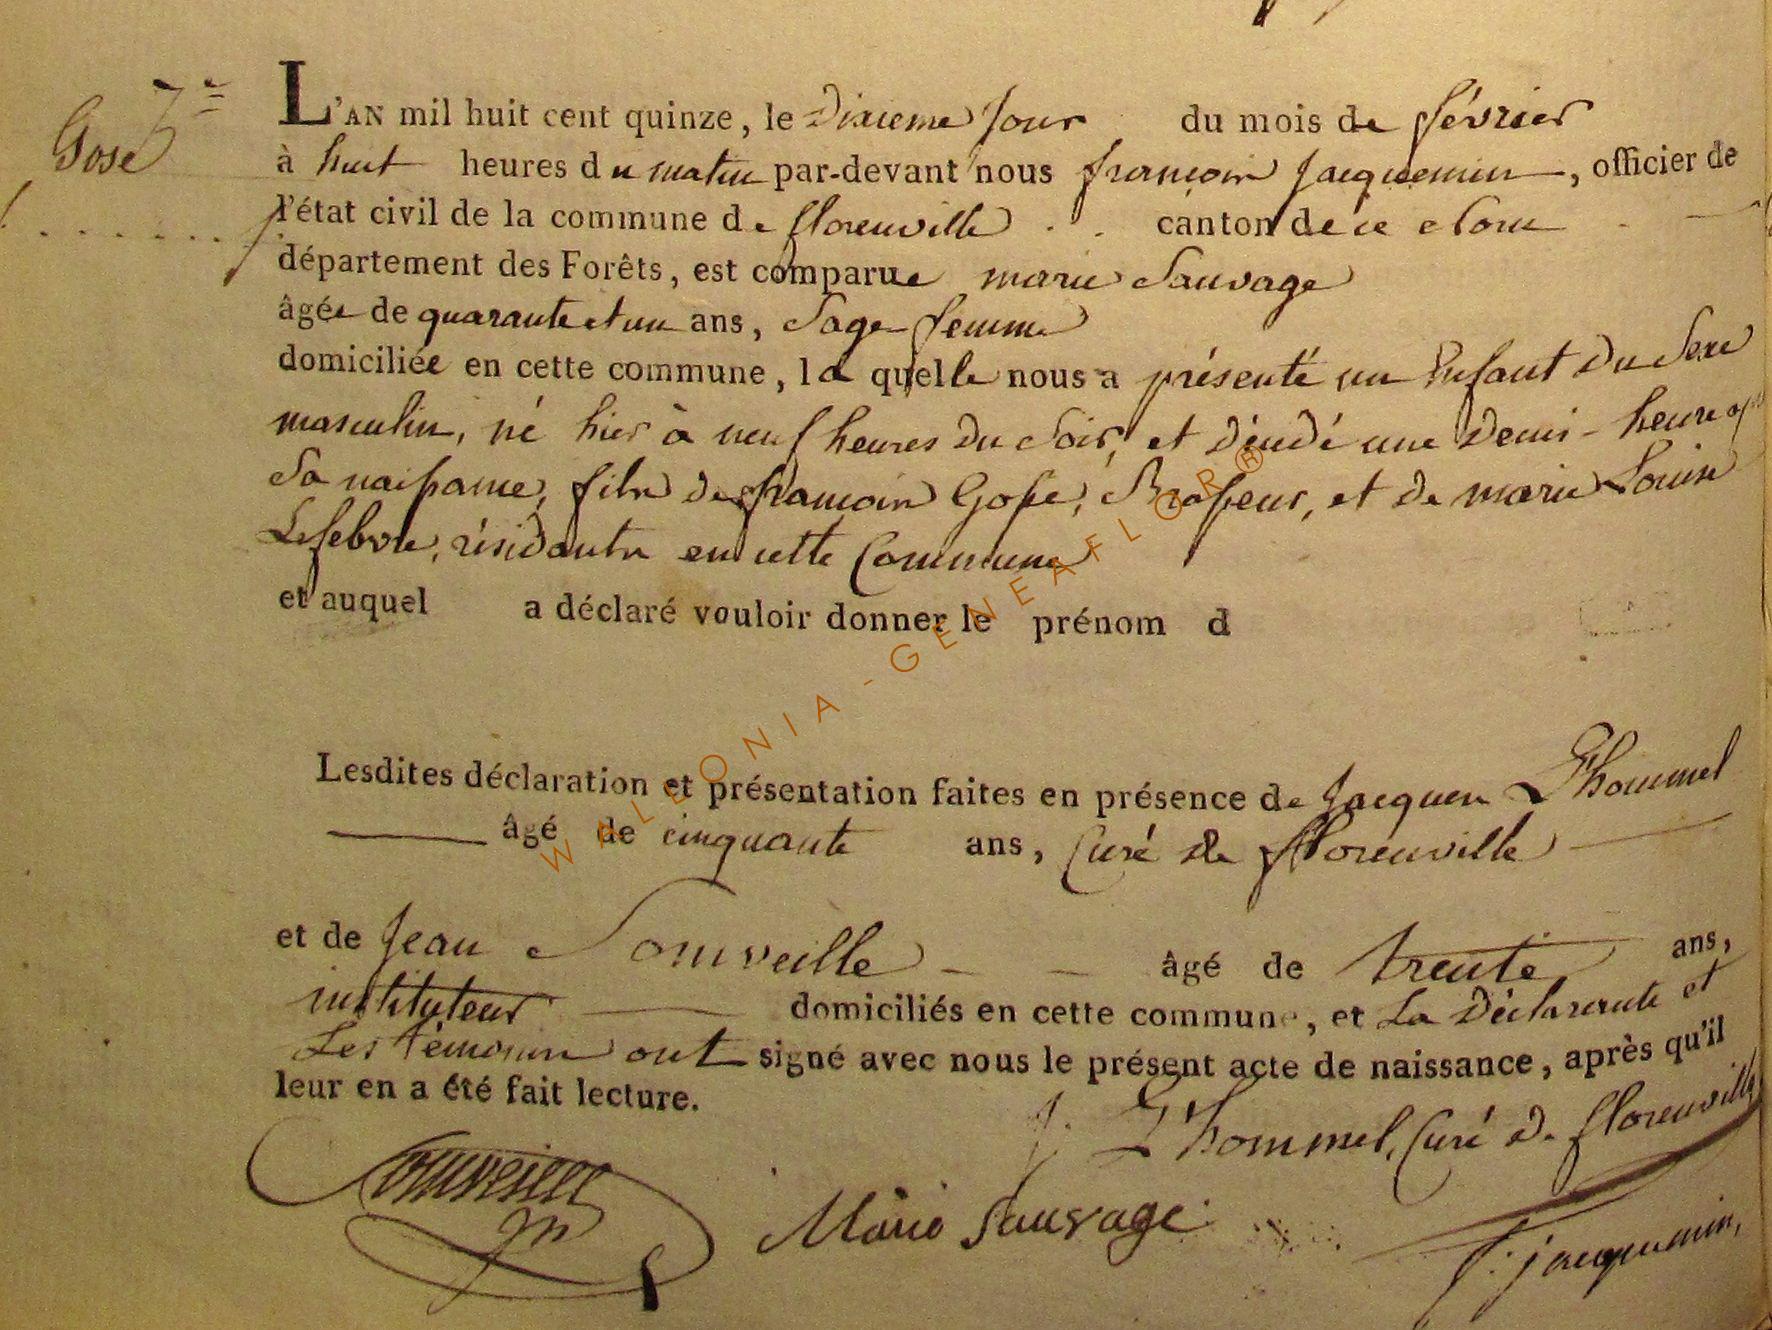 7e
Gosé
L'AN mil huit cent quinze, le dixieme jour du mois de février
à huit heures du matin par-devant nous françois jacquemin, officier de
l'état civil de la commune de florenville canton de ce nom
département des Forêts, est comparue marie Sauvage
âgée de quarante et un ans, Sage femme
domiciliée en cette commune, laquelle nous a présenté un Enfant du Sexe
masculin, né hier à neuf heures du Soir, et décédé une demi-heure
Sa naissance, fils de françois Gosse, Brasseur, et de marie Louise
Lefebvre, résidants en cette Commune
et auquel a déclaré vouloir donner le prénom d
Lesdites déclaration et présentation faites en présence de Jacques L'hommel
âgé de cinquante ans, Curé de florenville
et de Jean Somveille âgé de trente ans,
instituteur domiciliés en cette commune, et La Déclarante et
Les témoins ont signé avec nous le présent acte de naissance, après qu'il
leur en a été fait lecture.
J. L'hommel, Curé de florenville
Somveille
Marie Sauvage
f. jacquemin,
WALLONIA-GENEAFLOR®